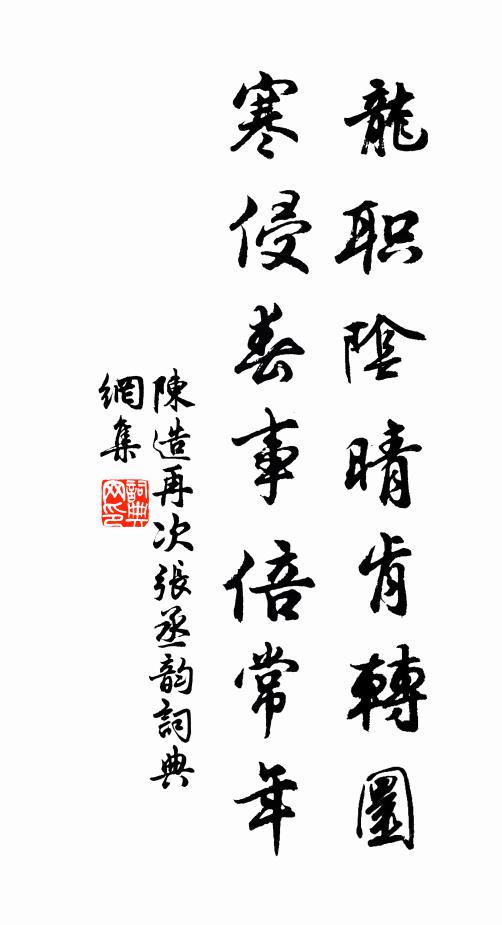 龍职陰晴肯轉圜
寒侵春事倍常年
陳造再次張丞韵詞典
網集
詞典
网印